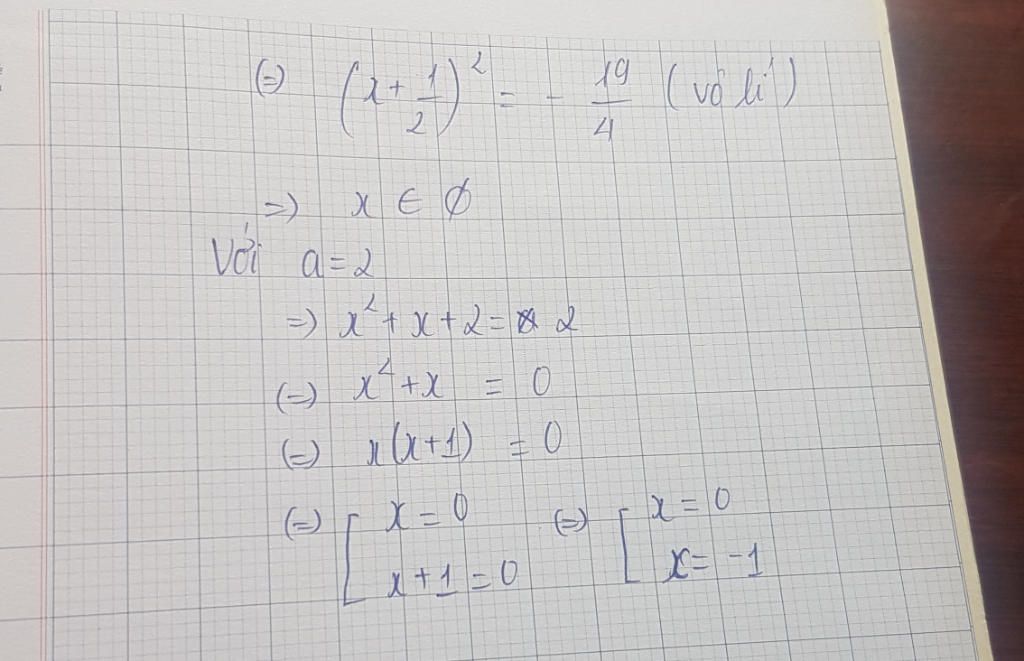 (=) (x + 1/2)² = - 19/4 (vô lí)
=) x ∈ ∅
Với a = 2
=) x² + x + 2 = 2
(=) x² + x = 0
(=) x(x+1) = 0
(=) [ x = 0 (=) [ x = 0
x + 1 = 0 x = -1